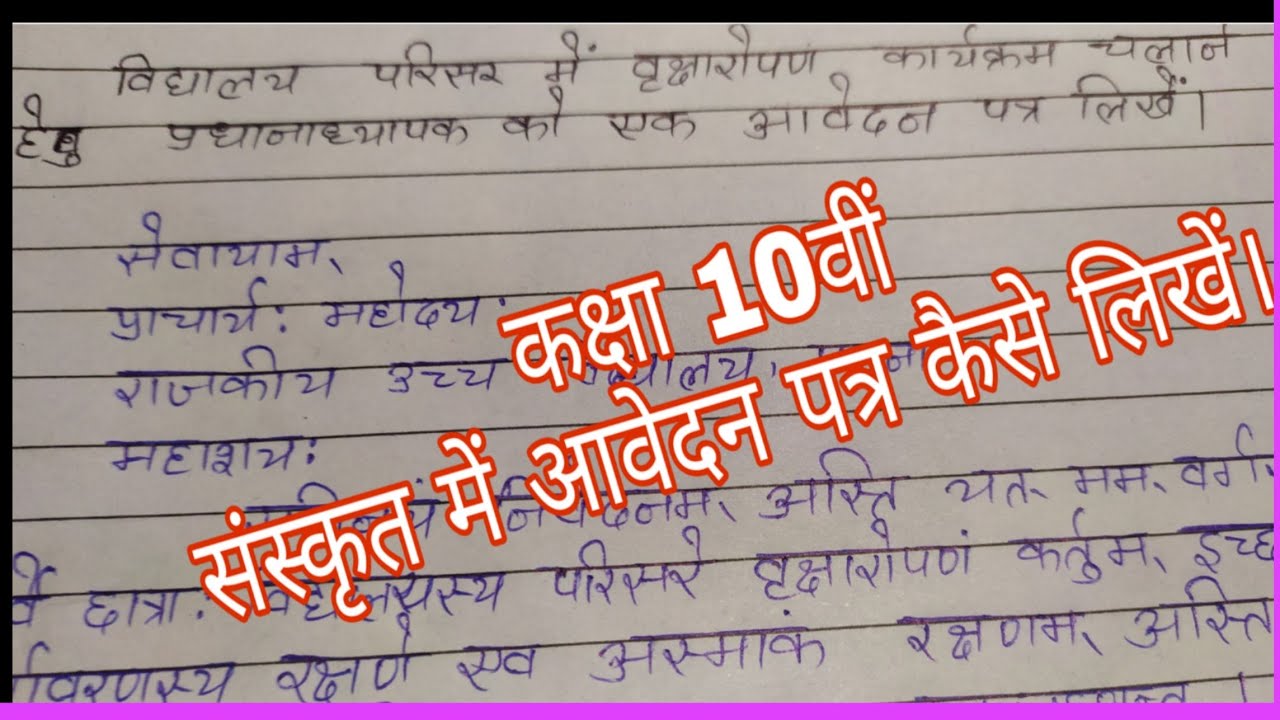 विद्यालय परिसर में वृक्षारोपण कार्यक्रम चलाने
हेतु प्रधानाध्यापक को एक आवेदन पत्र लिखें।
सेवायाम्,
प्राचार्य: महोदय:
राजकीय उच्च
महाशय:
अस्ति यत् मम्
छात्रा: परिसरे वृक्षारोपणं कर्तुम्
रक्षणे एव अस्माकं रक्षणम् अस्ति
कक्षा 10वीं
संस्कृत में आवेदन पत्र कैसे लिखें।